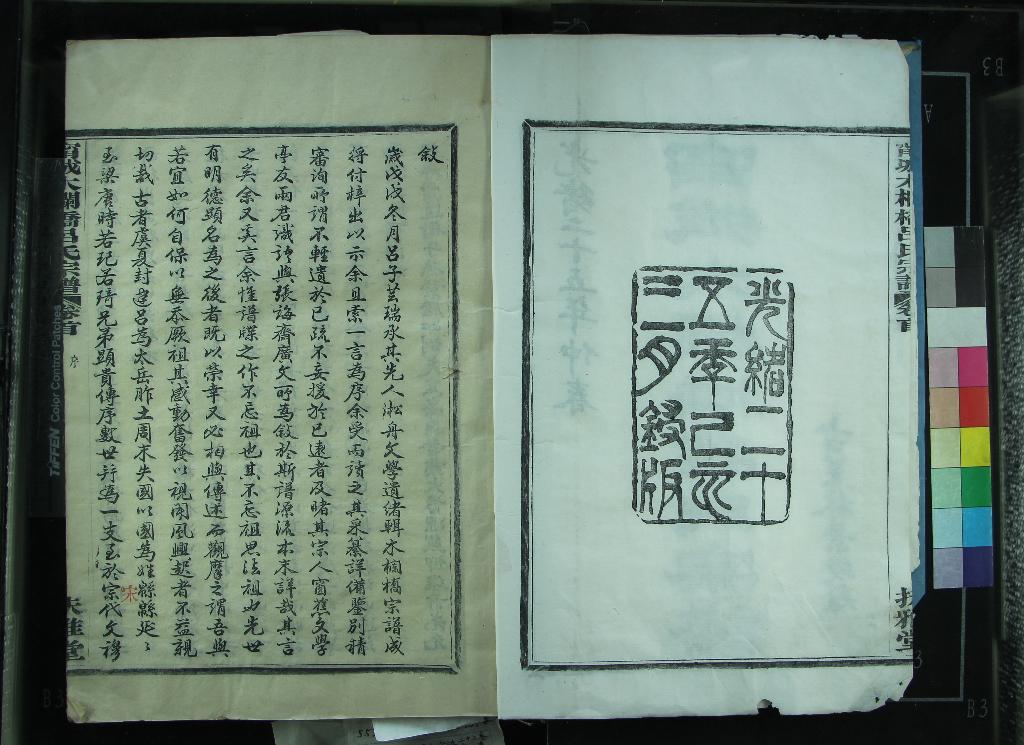 甯城木欄橋呂氏宗譜 卷首
扶雅堂
光緒二十
五年己亥
三月鋟版
敍
歲戊戌冬月呂子芸瑞承其先人淞舟文學遺緒輯木欄橋宗譜成
將付梓出以示余且索一言為序余受而讀之其采綦詳備鑒別精
審洵所謂不輕遺於已疏不妄援於已遠者及睹其宗人窗蕉文學
亭友兩君識語與張誨齋廣文所為敍於斯譜源流本末詳哉其言
之矣余又奚言余惟譜牒之作不忘祖也其不忘祖思法祖也先世
有明德顯名為之後者既以榮幸又必相與傳述而觀摩之謂吾與
若宜如何自保以無忝厥祖其感動奮發以視聞風興起者不益親
切哉古者虞夏封逹呂為太岳胙土周末失國以國為姓緜緜延〻
至梁唐時若玘若琦兄弟顯貴傳序數世號為一支至於宗代文穆
宋
甯城木欄橋呂氏宗譜 卷首
序
扶雅堂
TIFFEN Color Control Patches
B3
B3
B3
A